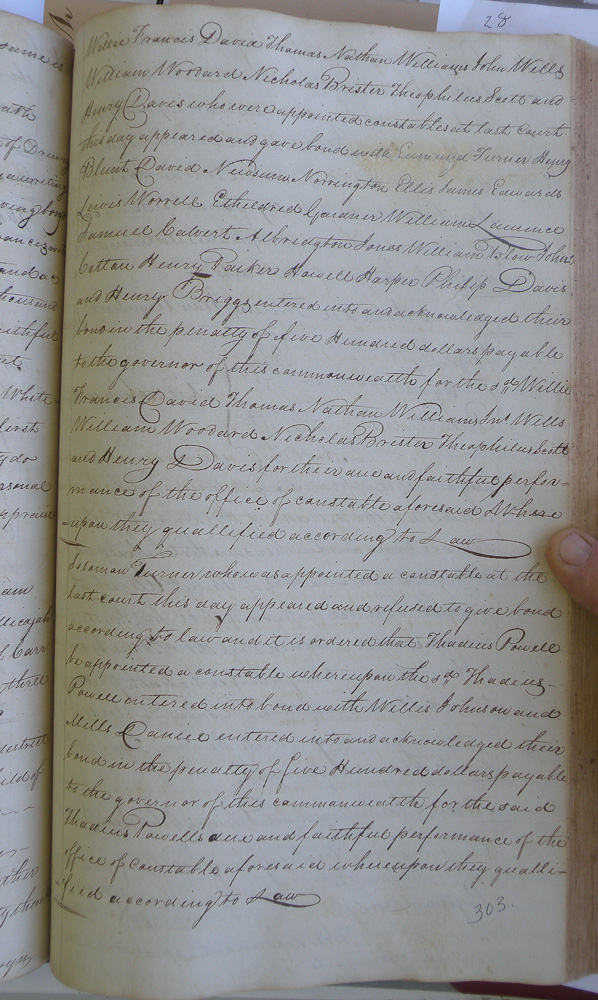 28
Willie Francis David Thomas Nathan Williams John Wells
William Woodard Nicholas Brister Theophilus Scott and
Henry Davis who were appointed constables at last Court
this day appeared and gave bond with Turner Henry
Blunt David Newsum Norrington Ellis James Edwards
Lewis Worrell Etheldred Gardner William Laurence
Samuel Calvert Albridgton Jones William Blow John
Cotton Henry Parker Howell Harper Philip Davis
and Henry Briggs entered into and acknowledged their
bond in the penalty of five Hundred dollars payable
to the governor of this commonwealth for the sd. Willie
Francis David Thomas Nathan Williams Jno. Wells
William Woodard Nicholas Brister Theophilus Scott
and Henry Davis for their due and faithful perfor-
mance of the office of constable aforesaid Where
=upon they quallified according to Law
Solomon Turner who was appointed a constable at the
last court this day appeared and refused to give bond
according to law and it is ordered that Thadeus Powell
be appointed a constable whereupon the sd. Thadeus-
Powell entered into bond with Willis Johnson and
Mills Daniel entered into and acknowledged their
bond in the penalty of five Hundred dollars payable
to the governor of this commonwealth for the said
Thadeus Powells due and faithful performance of the
office of constable aforesaid whereupon they qualli-
=fied according to Law
303.